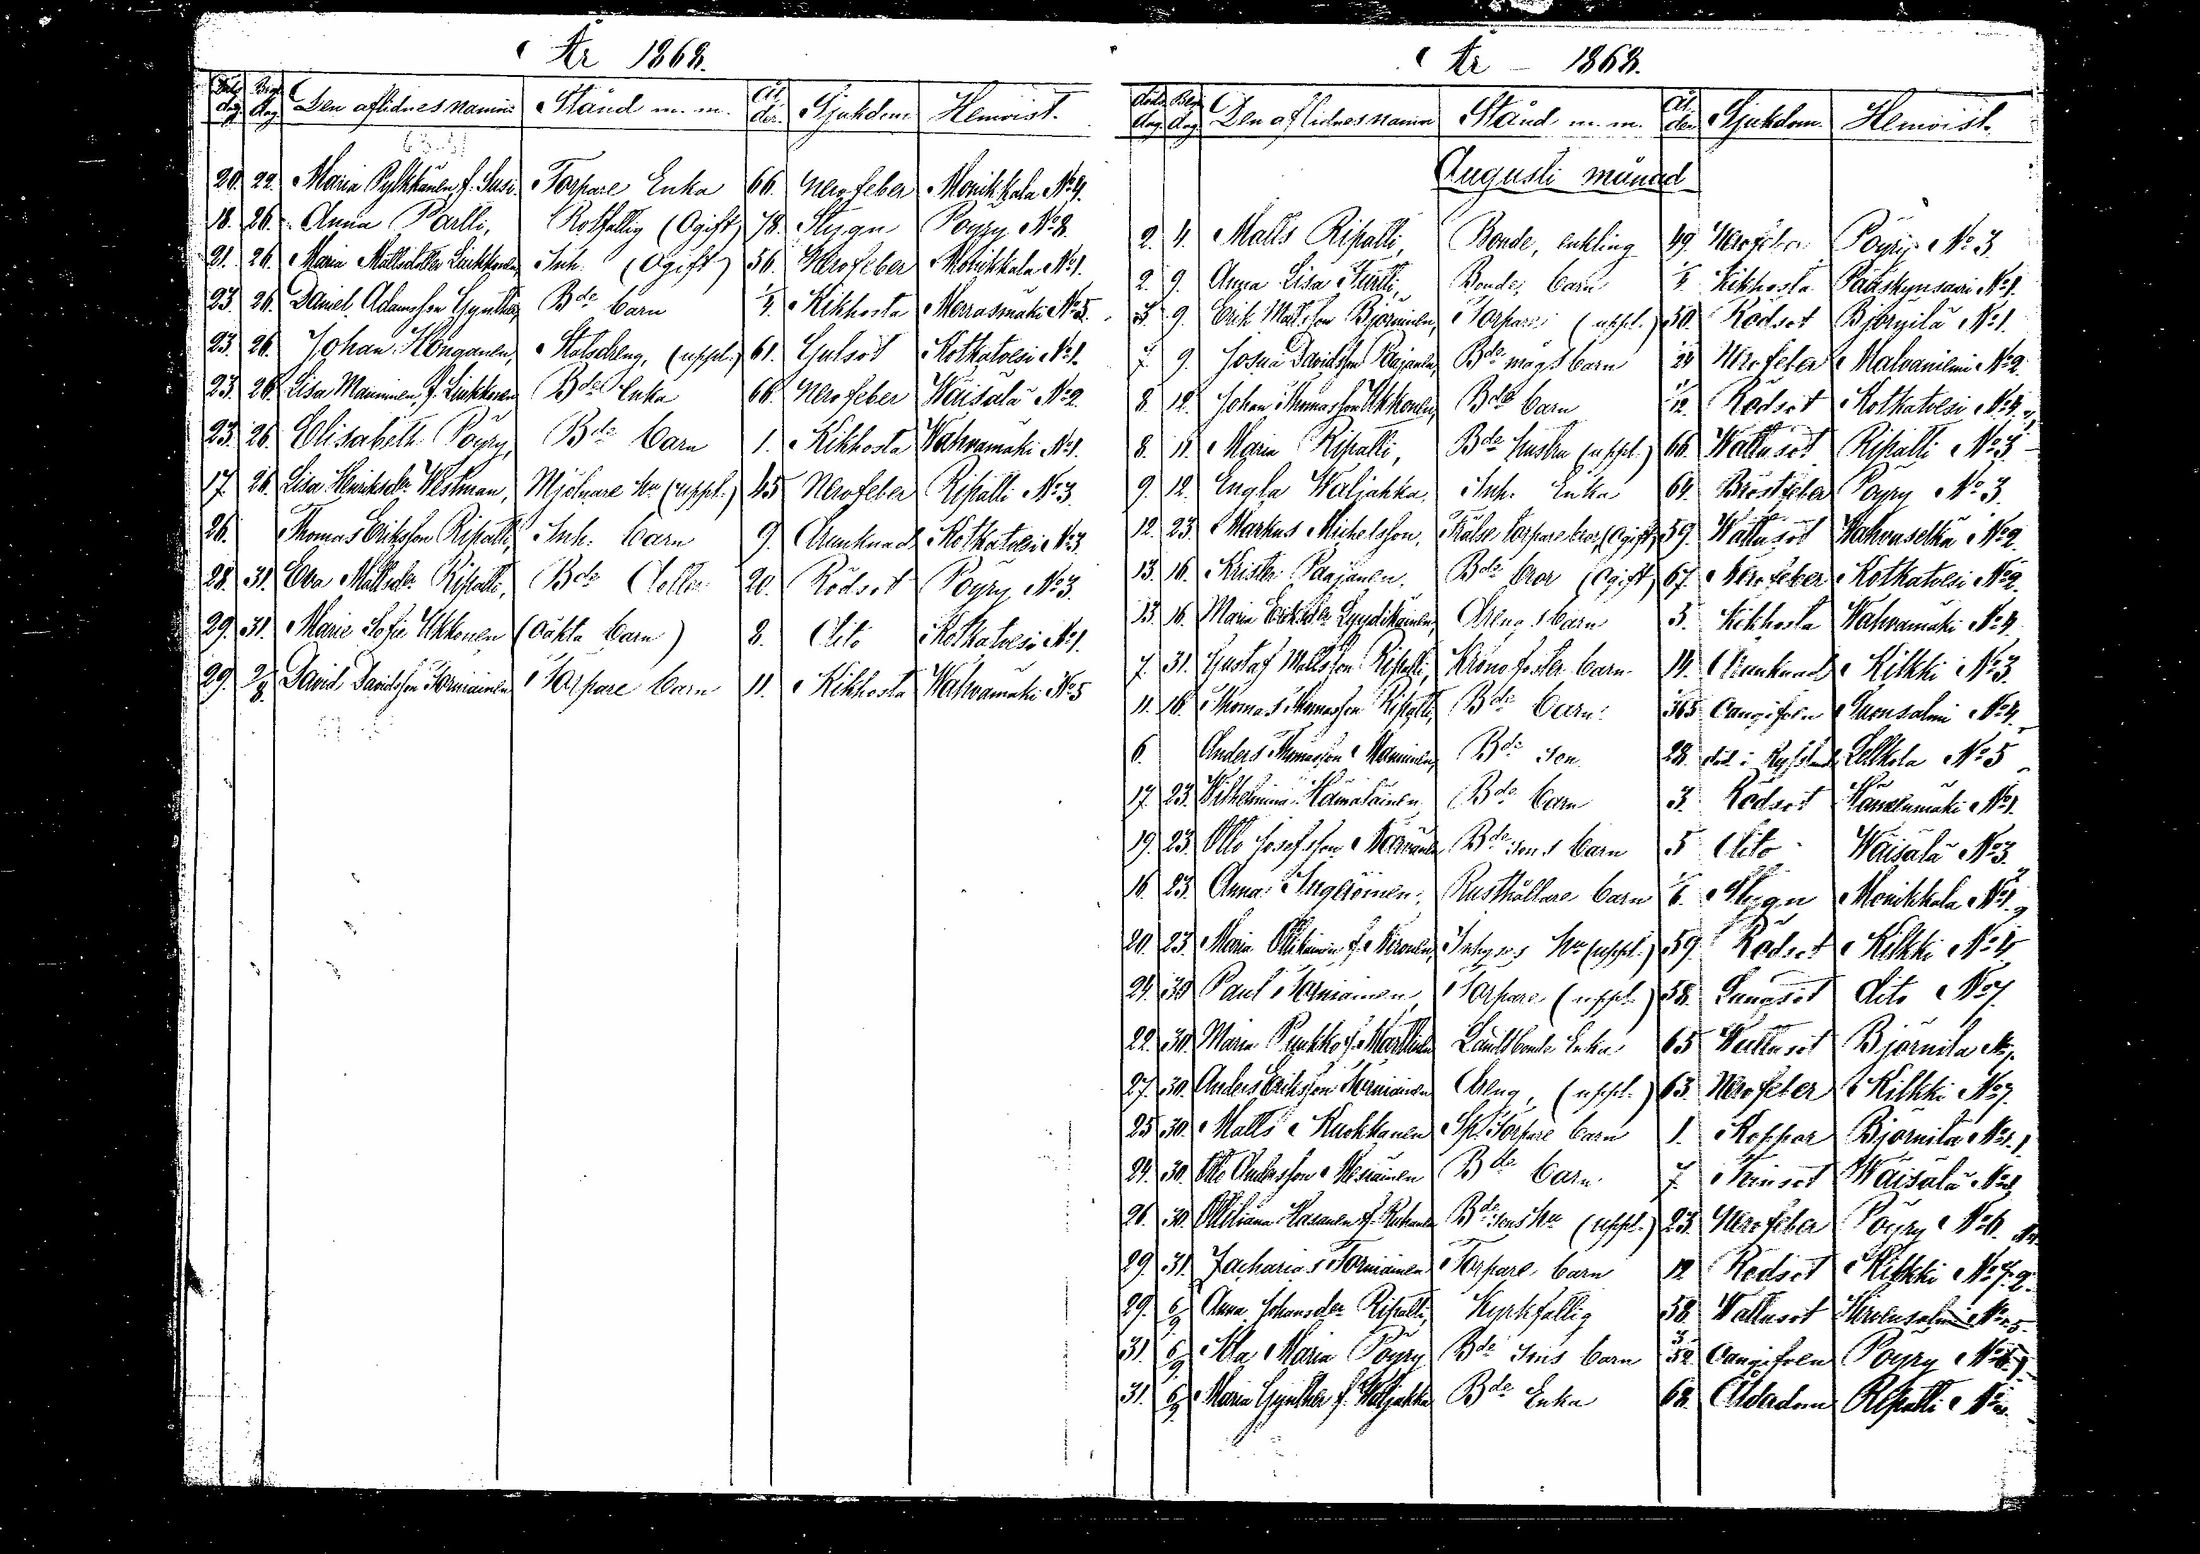 År 1868.
Döds dag Begr. dag Den aflidnes namn Stånd m. m. Ål der. Sjukdom Hemvist.
20. 22. Maria Pylkkänen f. Susi Torpare Enka 66. Nervfeber Monikkala No 4.
18. 26. Anna Partti, Rotfattig (Ogift) 78. Stygn Pöyry No 8.
21. 26. Maria Mattsdotter Liukkonen, Inh. (Ogift) 56. Nervfeber Monikkala No 1.
23. 26. Daniel Adamsson Gynther, Bde barn Kikhosta Merrasmäki No 5.
23. 26. Johan Honganen, Statsdreng, (uppl.) 61. Gulsot Kotkatvesi No 1.
23. 26. Lisa Manninen f. Liukkonen Bde Enka 66. Nervfeber Wäisälä No 2.
23. 26. Elisabeth Pöyry, Bde barn 1. Kikhosta Wahvamäki No 1.
17. 26. Lisa Henriksdr Westman, Mjölnare hu (uppl.) 45 Nervfeber Ripatti No 3.
26. Thomas Eriksson Ripatti, Inh. barn 9. Drunknad Kotkatvesi No 3
28. 31. Eva Mattsdr Ripatti, Bde dotter 20. Rödsot Pöyry No 3.
29. 31. Marie Sofie Ukkonen (oäkta barn) 8. Dito Kotkatvesi No 1.
29. 2/8. David Davidsson Torniainen Torpare barn 11. Kikhosta Wahvamäki No 5
År - 1868.
Döds dag. Begr. dag. Den aflidnes namn Stånd m. m. Ål der Sjukdom. Hemvist.
Augusti månad
2. 4. Matts Ripatti, Bonde, enkling 49. Nervfeber Pöyry No 3.
2. 9. Anna Lisa Turtti, Bonde barn Kikhosta Pääskynsaari No 1.
3. 9. Erik Mattsson Björninen, Torpare (uppl.) 50. Rödsot Björnilä No 1.
7. 9. Josua Davidsson Paajanen, Bde mågs barn Nervfeber Malvaniemi No 2.
8. 12. Johan Thomasson Ukkonen, Bde barn Rödsot Kotkatvesi No 4.
8. 11. Maria Ripatti, Bde hustru (uppl.) 66. Wattusot Ripatti No 3
9. 12. Engla Waljakka. Inh. Enka 64. Bröstfeber Pöyry No 3.
12. 23. Markus Michelsson. Frälse torpare bror, (Ogift) 59. Wattusot Wahvaselkä No 2.
13. 16. Krister Paajanen. Bde bror (Ogift) 67. Nervfeber Kotkatvesi No 2.
13. 16. Maria Eriksdr Lyydikäinen, Drengs barn 5. Kikhosta Wahvamäki No 4.
7. 31. Gustaf Mattsson Ripatti, Krono foster barn 14. Drunknad Kilkki No 3.
11. 16. Thomas Thomasson Ripatti, Bde barn Oangifven Suonsalmi No 4.
6. Anders Thomasson Manninen, Bde son 28. död i Ryssland No 5
17. 23. Wilhelmina Hämäläinen Bde barn 3. Rödsot Hänninmäki No 1.
19. 23. Otto Josefsson Bde sons barn 5 Dito Wäisälä No 3.
16. 23. Anna Ingeroinen, Rusthållare barn Stygn Monikkala No 1.
20. 23. Maria f. Inhyses hu (uppl.) 59. Rödsot Kilkki No 4.
24. 30. Paul Torniainen Torpare (uppl.) 58. Lungsot dito No 7.
22. 30. Maria Punkko f. Marttinen Landtbonde Enka 65 Wattusot Björnilä No
27. 30. Anders Eriksson Torniainen Dreng, (uppl.) 63. Nervfeber Kilkki No 7.
25 30. Matts Kuokkanen Sp. Torpare barn 1. Koppor Björnilä No 1.
24. 30. Otto Andersson Bde barn 7. Wäisälä No
26. 30. Ottiliana Hasanen f. Bde sons hu (uppl.) 23. Nervfeber Pöyry No 6.
29. 31. Zacharias Torniainen Torpare barn 12 Rödsot Kilkki No 7.
29. 6/9 Anna Johansdr Ripatti, Kyrkfattig 58. Wattusot Hirvensalmi No 5.
31. 6/9 Ida Maria Pöyry Bde sons barn 3/52 Oangifven Pöyry No
31. 6/9 Maria Gynther f. Waljakka Bde Enka 68. Ålderdom Ripatti No